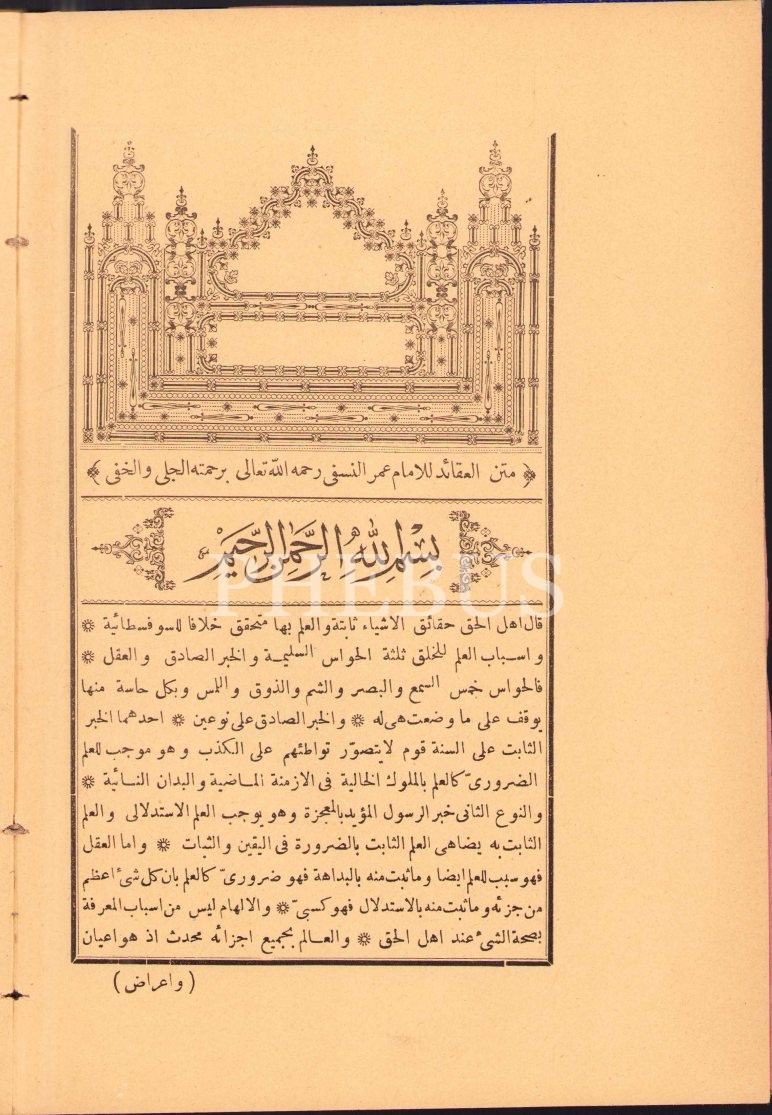 ﴿ متن العقائد للامام عمر النسفى رحمه الله تعالى برحمته الجلى والخفى ﴾
بسم الله الرحمن الرحيم
PHEBUS
قال اهل الحق حقائق الاشياء ثابتة والعلم بها متحقق خلافا للسوفسطائية ❊
واسباب العلم للخلق ثلثة الحواس السليمة والخبر الصادق والعقل ❊
فالحواس خمس السمع والبصر والشم والذوق واللمس وبكل حاسة منها
يوقف على ما وضعت هى له ❊ والخبر الصادق على نوعين ❊ احدهما الخبر
الثابت على السنة قوم لا يتصوّر تواطئهم على الكذب وهو موجب للعلم
الضرورىّ كالعلم بالملوك الخالية فى الازمنة الماضية والبدان النائية ❊
والنوع الثانى خبر الرسول المؤيد بالمعجزة وهو يوجب العلم الاستدلالى والعلم
الثابت به يضاهى العلم الثابت بالضرورة فى اليقين والثبات ❊ واما العقل
فهو سبب للعلم ايضا وما ثبت منه بالبداهة فهو ضرورىّ كالعلم بان كل شئ اعظم
من جزئه وما ثبت منه بالاستدلال فهو كسبىّ ❊ والالهام ليس من اسباب المعرفة
بصحة الشئ عند اهل الحق ❊ والعالم بجميع اجزائه محدث اذ هو اعيان
( واعراض )